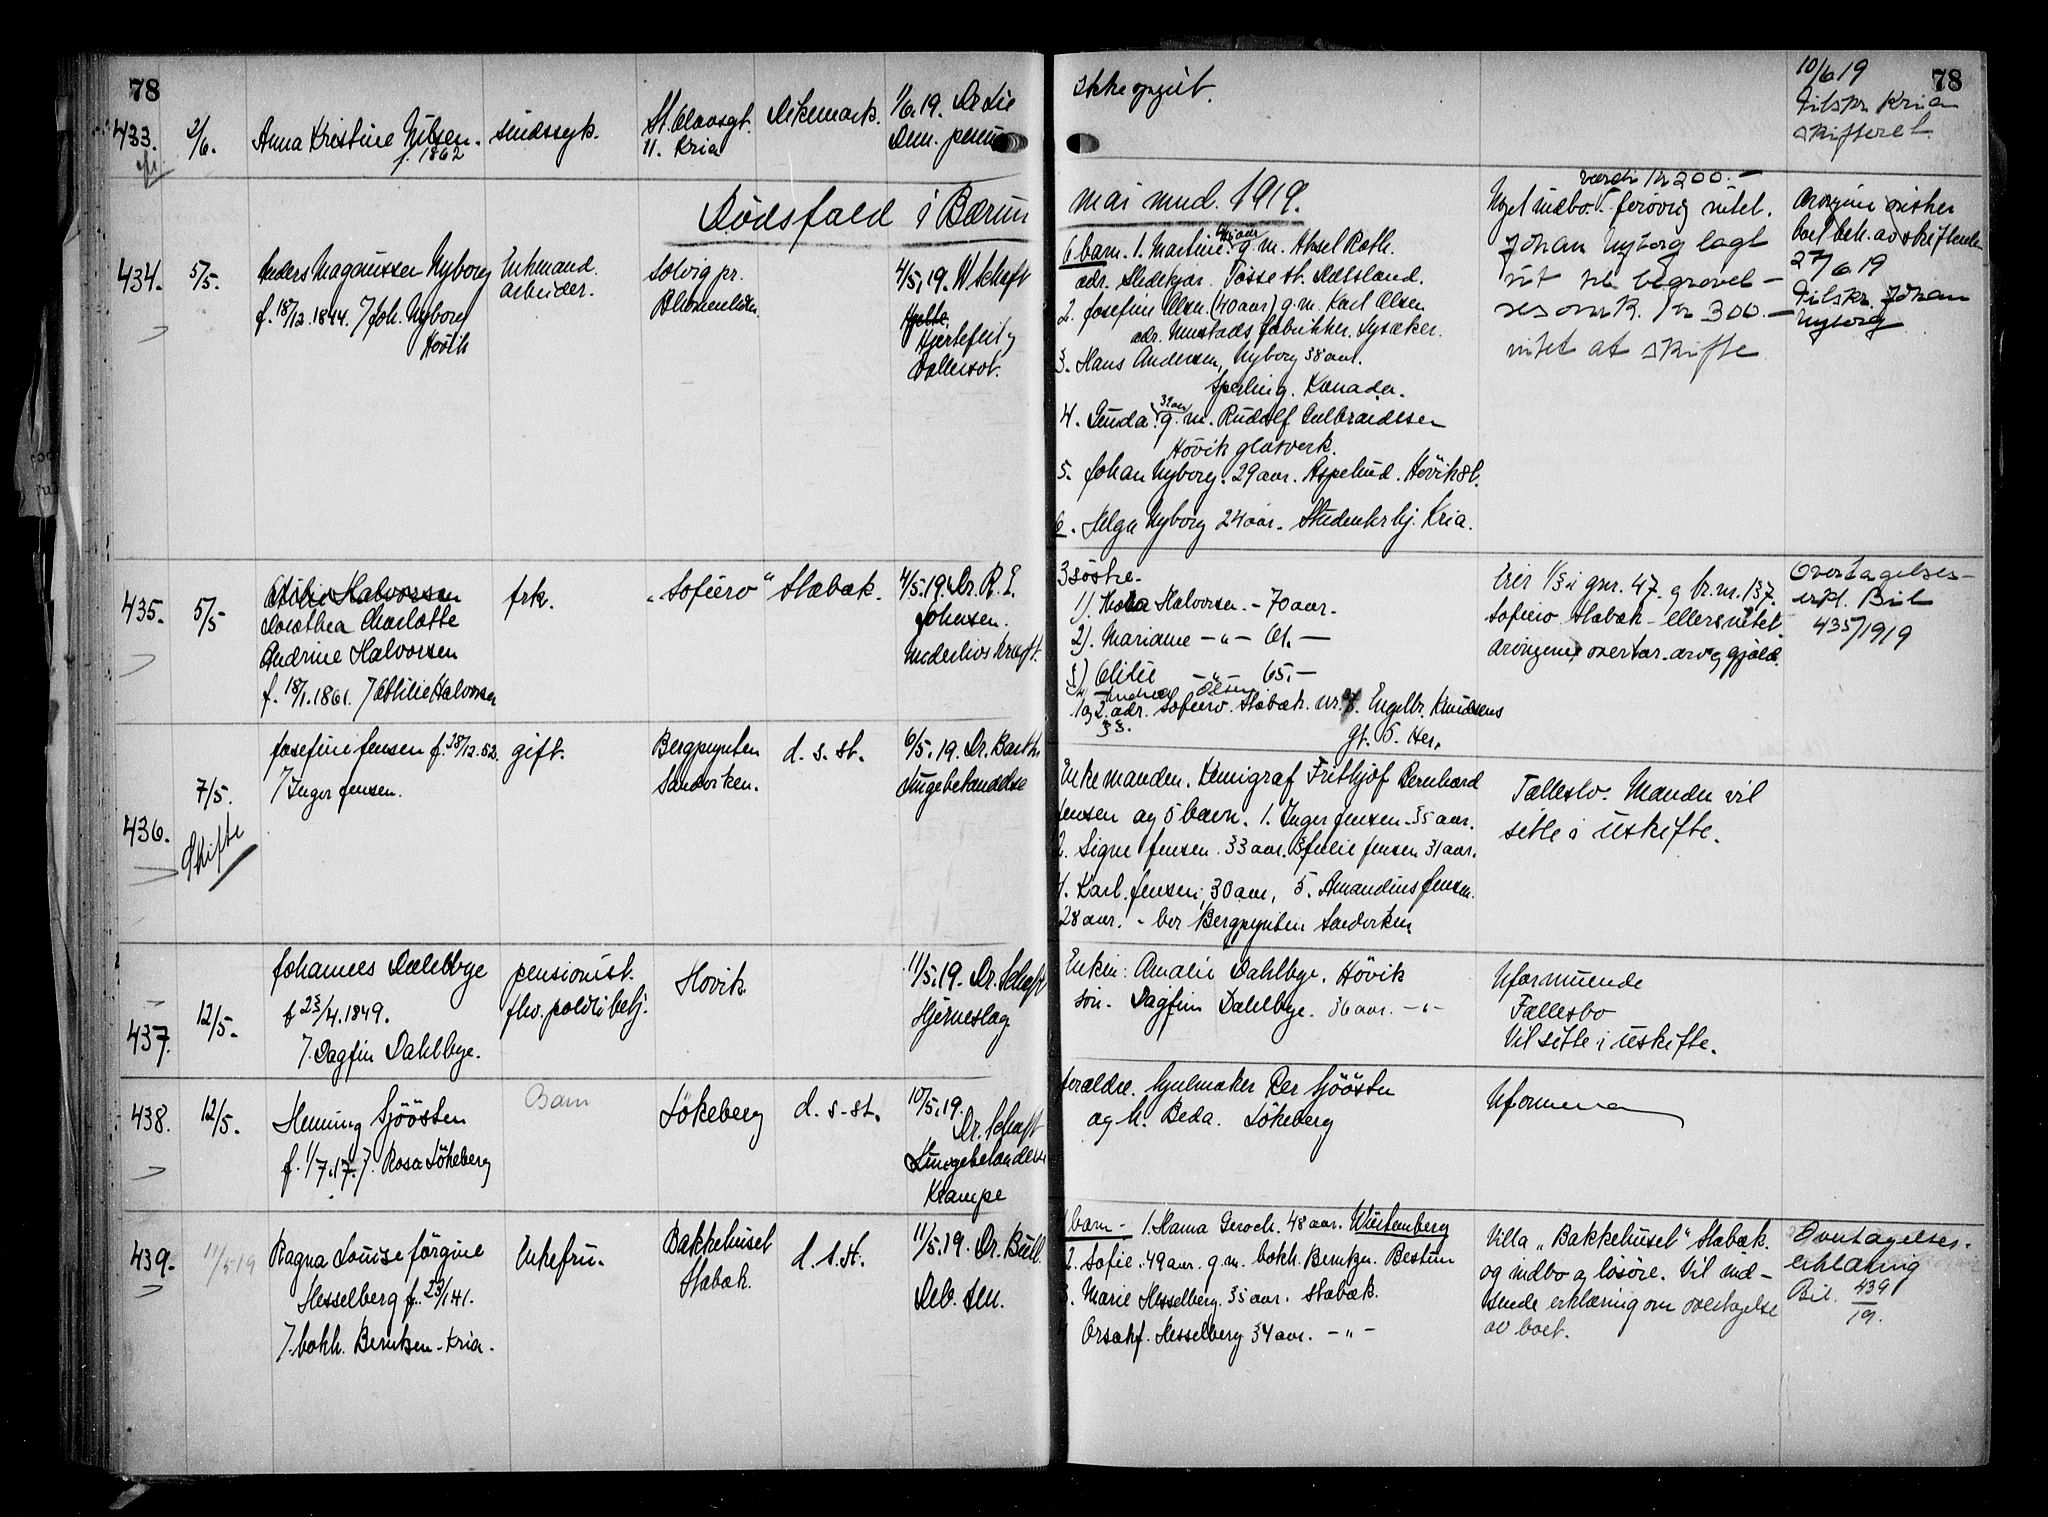 78
78
433.
2/6.
Anna Kristine Nilsen.
f. 1862
sindssyk.
St. Olavsgt.
11. Kria
Dikemark.
1/6.19. Dr Lie
Dem.
ikke opgit.
10/6 19
Tilskr. Kria
skifteret.
Dödsfald i Bærum
mai mnd. 1919.
434.
5/5.
Anders Magnussen Nyborg
f. 18/12.1844. / Joh. Nyborg
Hövik
Enkemand.
arbeider.
Solvig pr.
Blommenholm
4/5.19. W Schaft
Hjertefeil og
Vattersot.
6 barn. 1. Martine. g.m. Aksel Roth.
adr. Tösse st. Dalsland.
2. Josefine Olsen. (40 aar) g.m. Karl Olsen
adr. Mustads fabrikker. Lysaker.
3. Hans Andersen, Nyborg 38 aar.
Sperling. Kanada.
4. Gunda 32 aar g.m. Rudolf Gulbrandsen
Hövik glasverk.
5. Johan Nyborg. 29 aar. Aspelund. Hövik st.
6. Helga Nyborg 24 aar. Studenterhj. Kria.
værdi kr 200.-
Noget indbo. forövrig intet.
Johan Nyborg lagt
ut til begravel-
sesomk. kr 300.-
intet at skifte
Arvingene önsker
boet beh. av skifteretten
27/6 19
Tilskr. Johan
Nyborg
435.
5/5
Otilie Halvorsen
Dorothea Charlotte
Andrine Halvorsen
f. 18/1.1861. / Ottilie Halvorsen
frk.
"Sofiero"
Stabæk.
4/5.19. Dr. R. E.
Johnsen.
3 söstre.
1). Halvorsen. - 70 aar.
2). Mariane - " - 61. -
3) Otilie - " - 65. -
1 og 2. adr. Sofiero. Stabæk. nr. 3. Engelbr. Knudsens
gt. 5. Her.
Eier 1/3 i gnr. 47. og br.nr. 137.
Sofiero Stabæk - ellers intet.
Arvingene overtar arv og gjæld.
Overtagelses-
erkl. Bil
435/1919
436.
7/5.
Skifte
Josefine Jensen f. 18/12.52.
/ Inger Jensen.
gift.
Bergpynten
Sandviken.
d. s. st.
6/5.19. Dr. Barth
Lungebetændelse
Enkemanden. Kemigraf Frithjof Bernhard
Jensen og 5 barn. 1. Inger Jensen - 35 aar.
2. Signe Jensen. 33 aar. 3. Julie Jensen 31 aar.
4. Karl Jensen, 30 aar, 5. Amandius Jensen.
28 aar. - bor Bergpynten Sandviken
Fællesbo. Manden vil
sitte i uskifte.
437.
12/5.
Johannes Dahlbye
f 23/4.1849.
/. Dagfin Dahlbye.
pensionist.
fhv. politibetj.
Hövik
11/5.19. Dr. Schaft
Hjerneslag
Enken: Amalie Dahlbye. Hövik
sön. Dagfin Dahlbye. 36 aar. - " -
Uformuende
Fællesbo
Vil sitte i uskifte.
438.
12/5.
Henning Sjöösten
f. 1/7.17. /. Rosa Lökeberg
Barn
Lökeberg
d. s. st.
10/5.19.
Dr. Schaft
Lungebetændelse
Krampe
forældre. hjulmaker Per Sjöösten
og h. Beda. Lökeberg
439.
11/5 19
Ragna Louise Jörgine
Hesselberg f. 23/1 41.
/. bokh. Berntzen - Kria.
Enkefru.
Bakkehuset
Stabæk.
d. s. st.
11/5.19. Dr. Bull
Deb. sen.
barn - 1. Hanna Geroch. 48 aar. Würtemberg
2. Sofie. 49 aar. g.m. bokh. Berntzen. Bestum
3. Marie Hesselberg. 35 aar. Stabæk.
Hesselberg 34 aar. - " -
Villa "Bakkehuset" Stabæk.
og indbo og lösöre. Vil ind-
sende erklæring om overtagelse
av boet.
Overtagelses-
erklæring
Bil. 439/19.